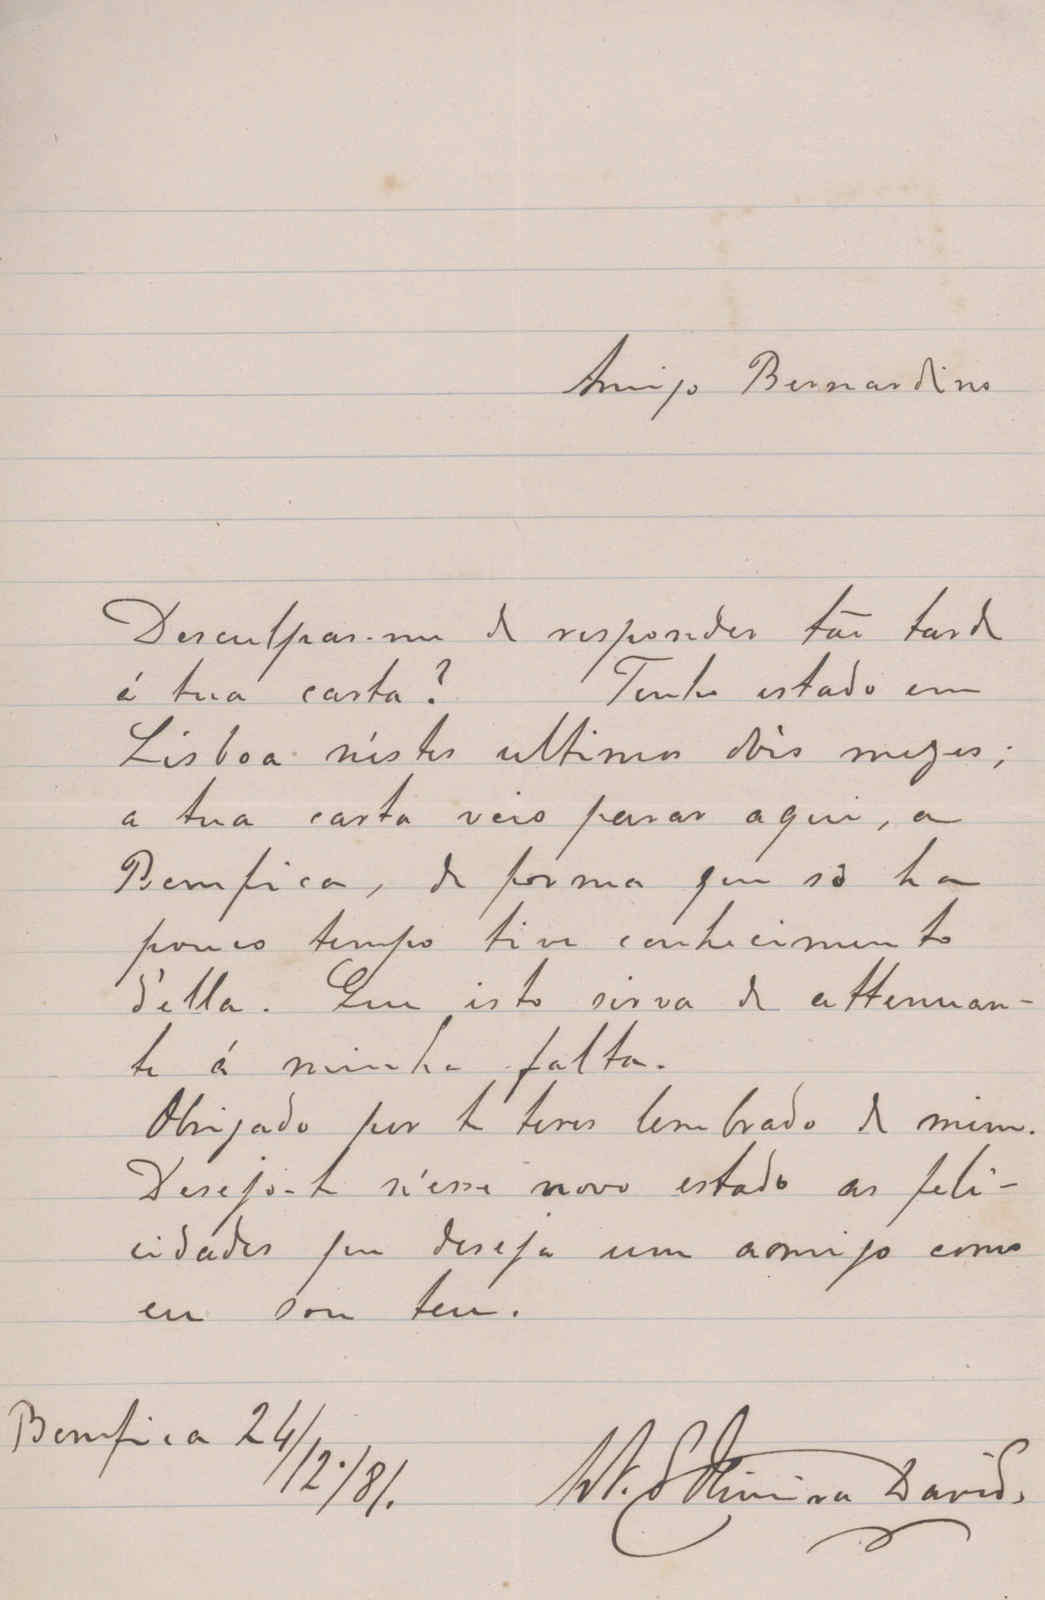 Amigo Bernardino
Desculpas-me de responder tão tarde
á tua carta? Tenho estado em
Lisboa n'estes ultimos dois mezes;
a tua carta veio parar aqui, a
Bemfica, de forma que só ha
pouco tempo tive conhecimento
d'ella. Que isto sirva de attenuan-
te á minha falta.
Obrigado por te teres lembrado de mim.
Desejo-te n'esse novo estado as feli-
cidades que deseja um amigo como
eu sou teu.
Bemfica 24/12/81.
d'Oliveira David.